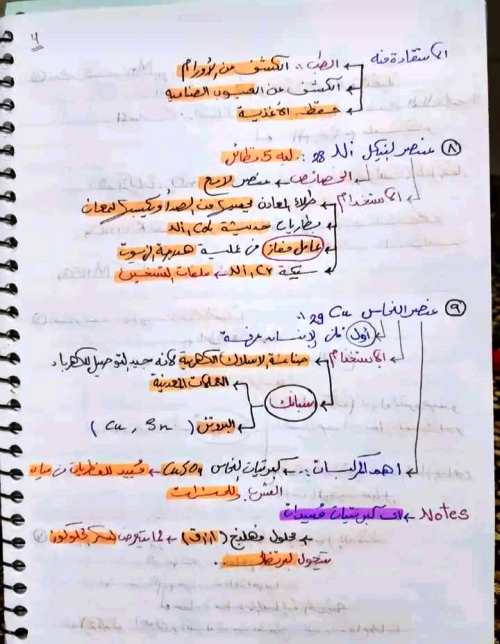 الاستفادة منه
الطب :- الكشف عن الأورام
الكشف عن العيوب الصناعية
حفظ الأغذية
⑧ عنصر لنيكل 28 Ni :- له 5 نظائر
الخصائص ← عنصر لامع
الاستخدام ← طلاء المعادن ليحميها من الصدأ
بطاريات حديثة Ni, Cd
عامل حفاز في عملية هدرجة الزيوت
سبيكة Ni, Cr ← ملفات التسخين
⑨ عنصر النحاس 29 Cu :-
أول فلز الإنسان عرفه
الاستخدام ← صناعة الاسلاك الكهربية لأنه جيد لتوصيل الكهرباء
سبائك
العملات المعدنية
البرونز ( Cu , Sn )
اهم المركبات :- كبريتات النحاس CuSO4 ← مبيد للفطريات في مياه
الشرب للحشرات
Notes ←
محلول فهلنج (أزرق) ← لسكر الجلوكوز
يتحول لبرتقالي .